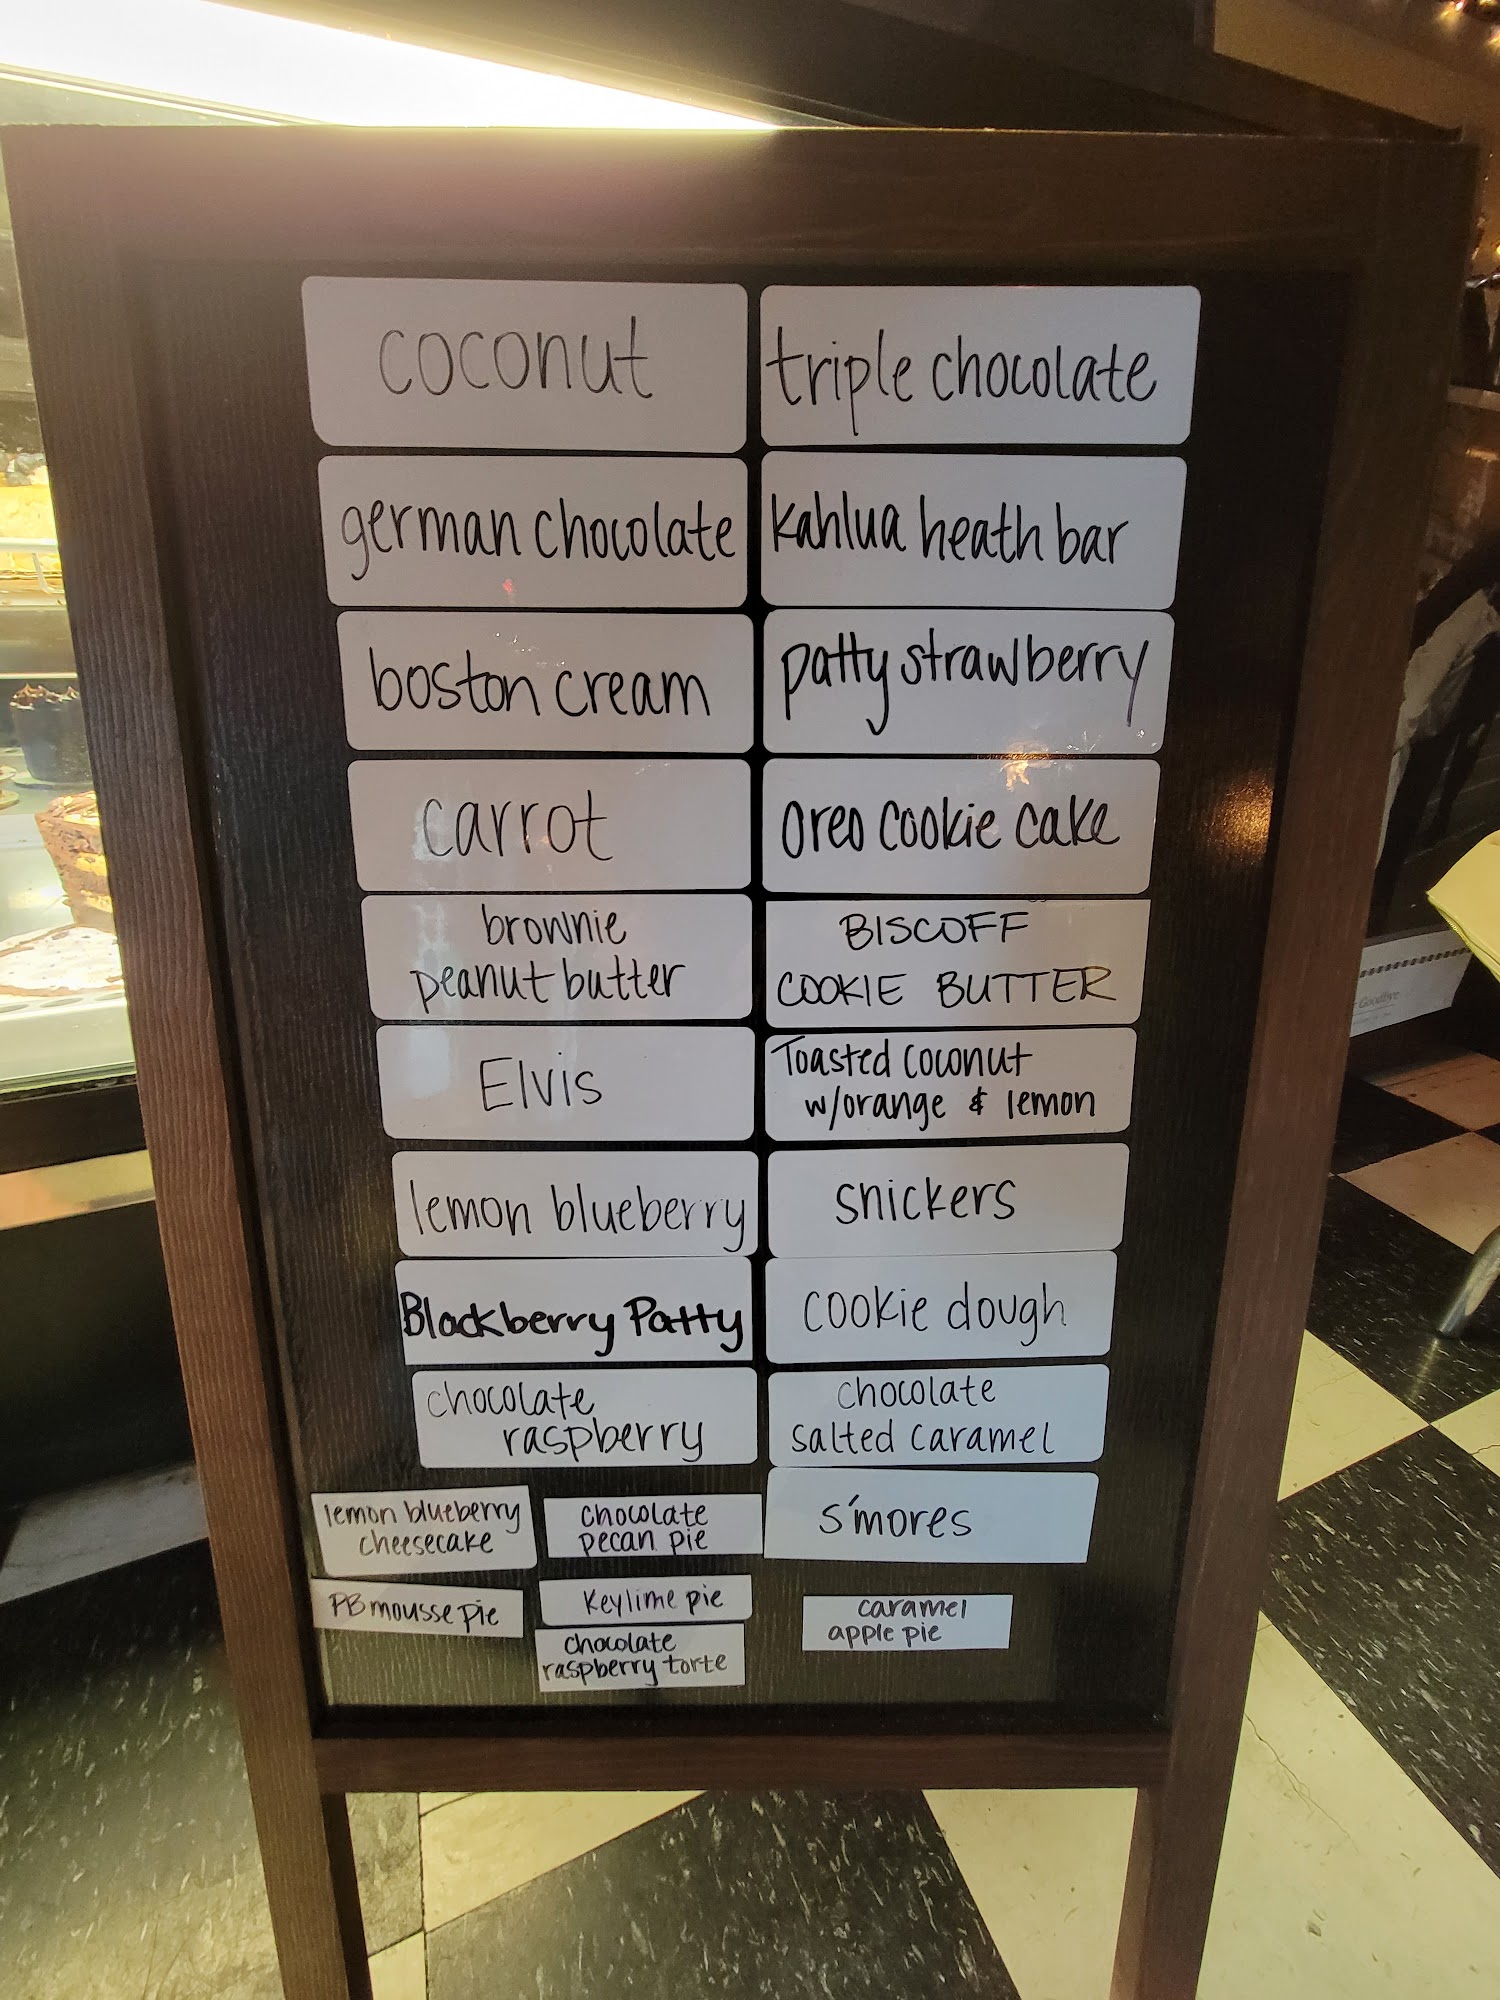 coconut
triple chocolate
german chocolate
kahlua heath bar
boston cream
patty strawberry
carrot
oreo cookie cake
brownie
peanut butter
BISCOFF
COOKIE BUTTER
Elvis
Toasted coconut
w/orange & lemon
lemon blueberry
snickers
Blackberry Patty
cookie dough
chocolate
raspberry
chocolate
salted caramel
lemon blueberry
cheesecake
chocolate
pecan pie
s'mores
PB mousse pie
Keylime pie
chocolate
raspberry torte
caramel
apple pie
Goodbye